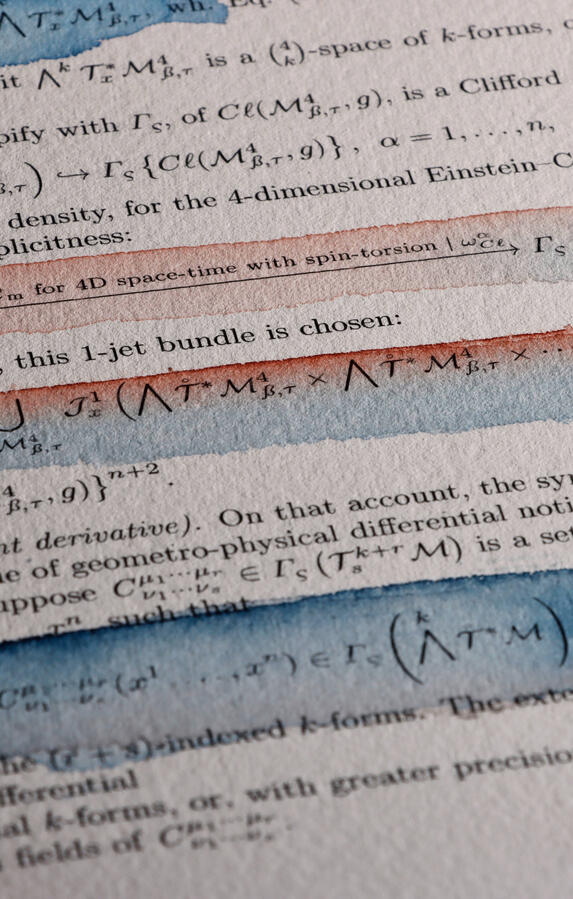 ⋀ T*ₓ M⁴ᵦ,τ, wh. Eq. (
it ⋀ᵏ T*ₓ M⁴ᵦ,τ is a (⁴ₖ)-space of k-forms,
pify with Γ_S, of Cℓ(M⁴ᵦ,τ, g), is a Clifford
ᵦ,τ) ↪ Γ_S {Cℓ(M⁴ᵦ,τ, g)}, α = 1, ..., n,
density, for the 4-dimensional Einstein–C
plicitness:
m for 4D space-time with spin-torsion | ω^α_Cℓ → Γ_S
, this 1-jet bundle is chosen:
⋃ M⁴ᵦ,τ J¹ₓ (⋀ T̊* M⁴ᵦ,τ × ⋀ T̊* M⁴ᵦ,τ × ··
⁴ᵦ,τ, g)}ⁿ⁺².
nt derivative). On that account, the syn
ne of geometro-physical differential noti
uppose C^{μ₁···μᵣ}_{ν₁···νₛ} ∈ Γ_S (T^{k+r}_s M) is a set
xⁿ, such that
C^{μ₁···μᵣ}_{ν₁···νₛ} (x¹ ..., xⁿ) ∈ Γ_S (⋀ᵏ T* M)
he (r + s)-indexed k-forms. The exte
fferential
ial k-forms, or, with greater precision
fields of C^{μ₁···μᵣ}_{ν₁···νₛ}.